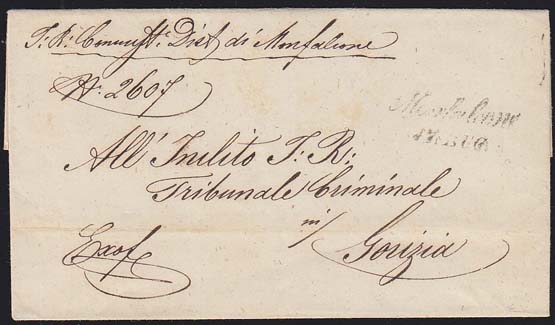 I: R: Commissto. Dist di Monfalcone
N: 2607
Monfalcone
All' Inclito I: R:
Tribunale Criminale
in/
Gorizia
Exof